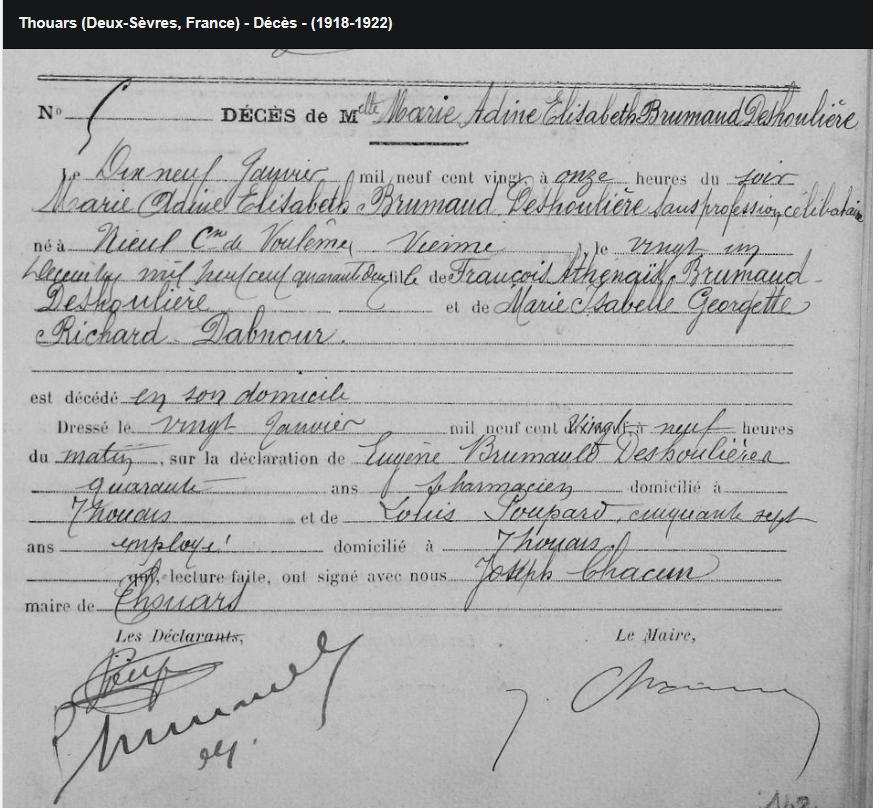 Thouars (Deux-Sèvres, France) - Décès - (1918-1922)
N° 5 DÉCÈS de Melle Marie Adine Elisabeth Brumaud Deshoulière
Le Dix neuf Janvier mil neuf cent vingt à onze heures du soir
Marie Adine Elisabeth Brumaud Deshoulière sans profession, célibataire
né à Nieul Cne de Voulême, Vienne, le vingt un
Décembre mil neuf cent quarante deux fille de François Athenaïs Brumaud
Deshoulière et de Marie Isabelle Georgette
Richard Dabnour.
est décédé en son domicile
Dressé le vingt Janvier mil neuf cent vingt à neuf heures
du matin, sur la déclaration de Eugène Brumauld Deshoulières
quarante ans pharmacien domicilié à
Thouars et de Louis Poupard, cinquante sept
ans employé domicilié à Thouars
qui, lecture faite, ont signé avec nous Joseph Chacun
maire de Thouars
Les Déclarants, Le Maire,